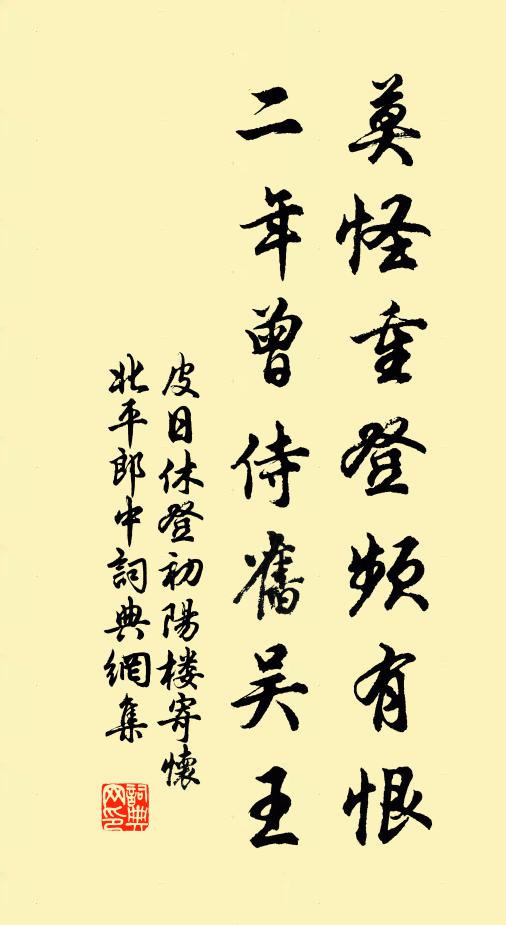 莫怪重登頻有恨
二年曾侍舊吴王
皮日休登初陽楼寄懷
北平郎中詞典網集
詞典網印